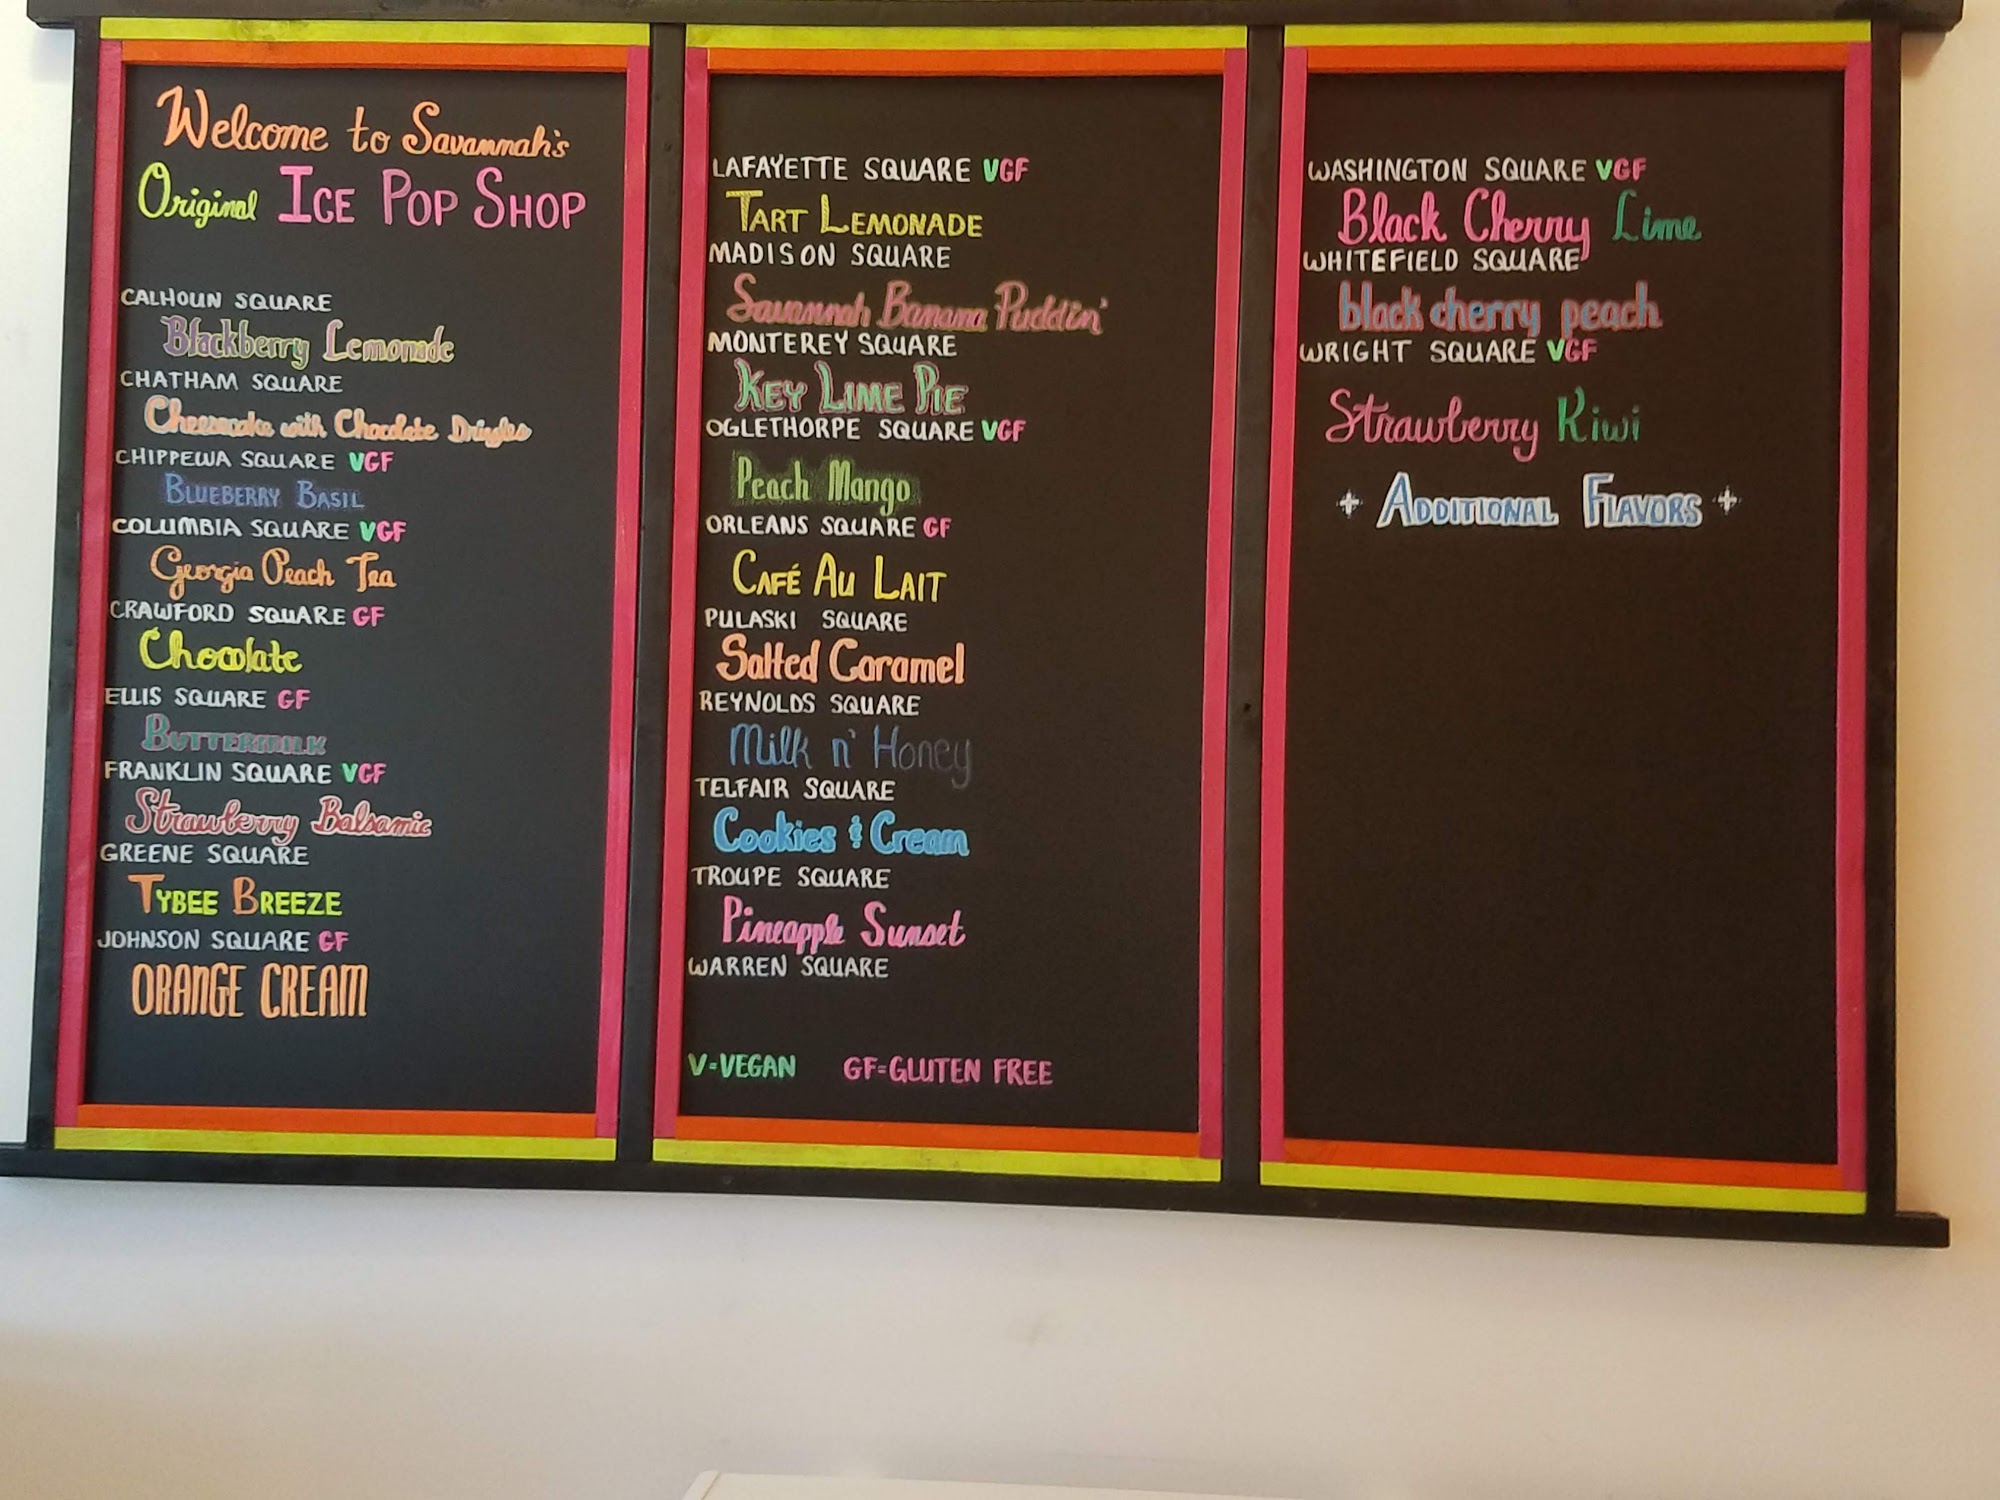 Welcome to Savannah's
Original ICE POP SHOP
CALHOUN SQUARE
Blackberry Lemonade
CHATHAM SQUARE
Cheesecake with Chocolate Drizzles
CHIPPEWA SQUARE VGF
BLUEBERRY BASIL
COLUMBIA SQUARE VGF
Georgia Peach Tea
CRAWFORD SQUARE GF
Chocolate
ELLIS SQUARE GF
BUTTERMILK
FRANKLIN SQUARE VGF
Strawberry Balsamic
GREENE SQUARE
TYBEE BREEZE
JOHNSON SQUARE GF
ORANGE CREAM
LAFAYETTE SQUARE VGF
TART LEMONADE
MADISON SQUARE
Savannah Banana Puddin'
MONTEREY SQUARE
KEY LIME PIE
OGLETHORPE SQUARE VGF
Peach Mango
ORLEANS SQUARE GF
CAFÉ AU LAIT
PULASKI SQUARE
Salted Caramel
REYNOLDS SQUARE
Milk n' Honey
TELFAIR SQUARE
Cookies & Cream
TROUPE SQUARE
Pineapple Sunset
WARREN SQUARE
V=VEGAN GF=GLUTEN FREE
WASHINGTON SQUARE VGF
Black Cherry Lime
WHITEFIELD SQUARE
black cherry peach
WRIGHT SQUARE VGF
Strawberry Kiwi
+ ADDITIONAL FLAVORS +